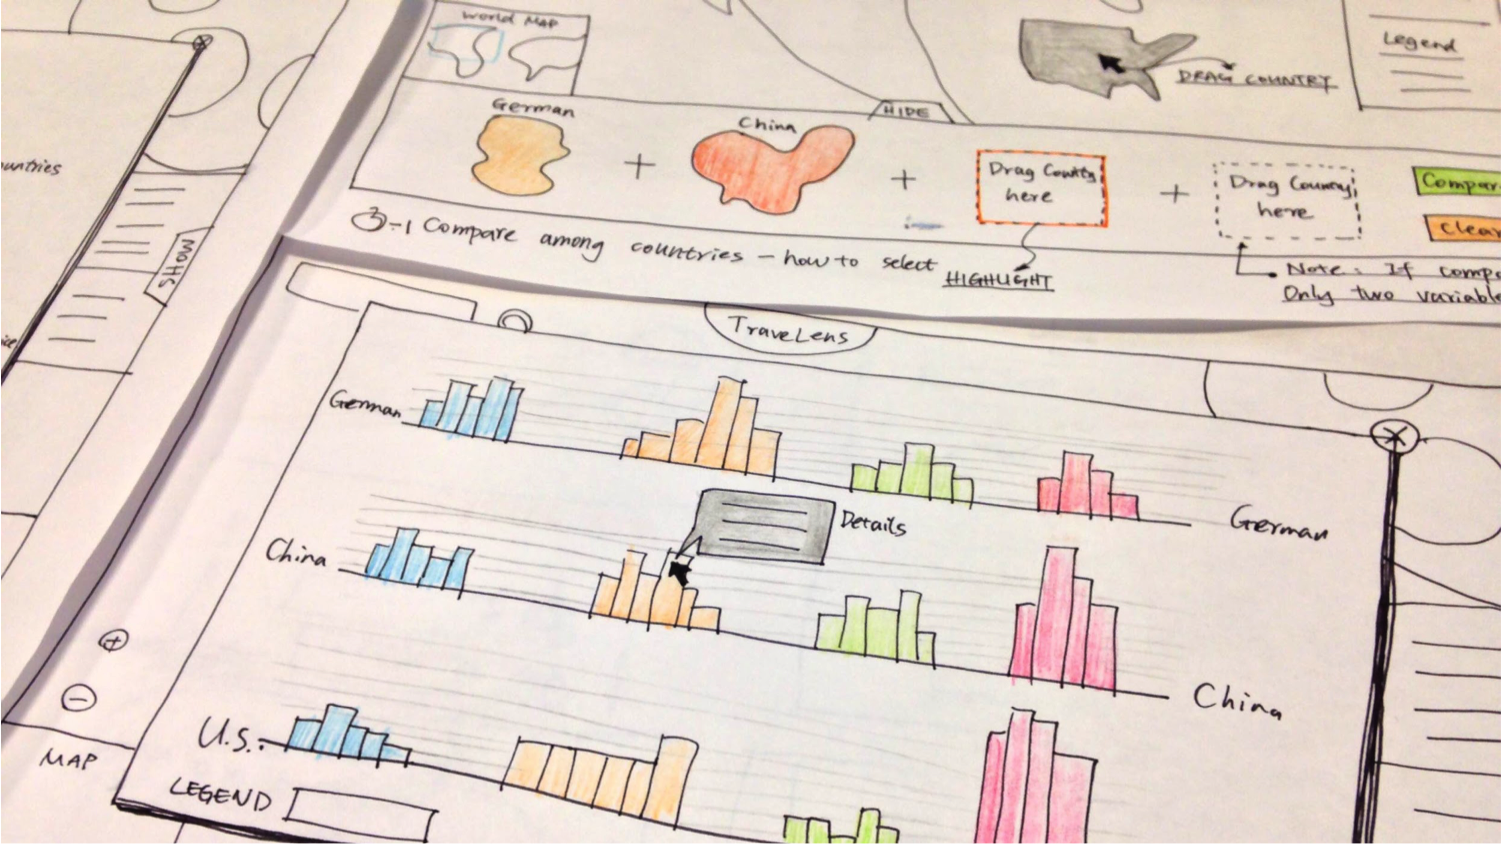 World MAP
Legend
DRAG COUNTRY
HIDE
German
China
Drag County
here
Drag Country
here
Compar
Clear
untries
SHOW
③-1 Compare among countries - how to select
HIGHLIGHT
Note: If comp
Only two variable
TraveLens
German
German
Details
China
China
U.S.
MAP
LEGEND